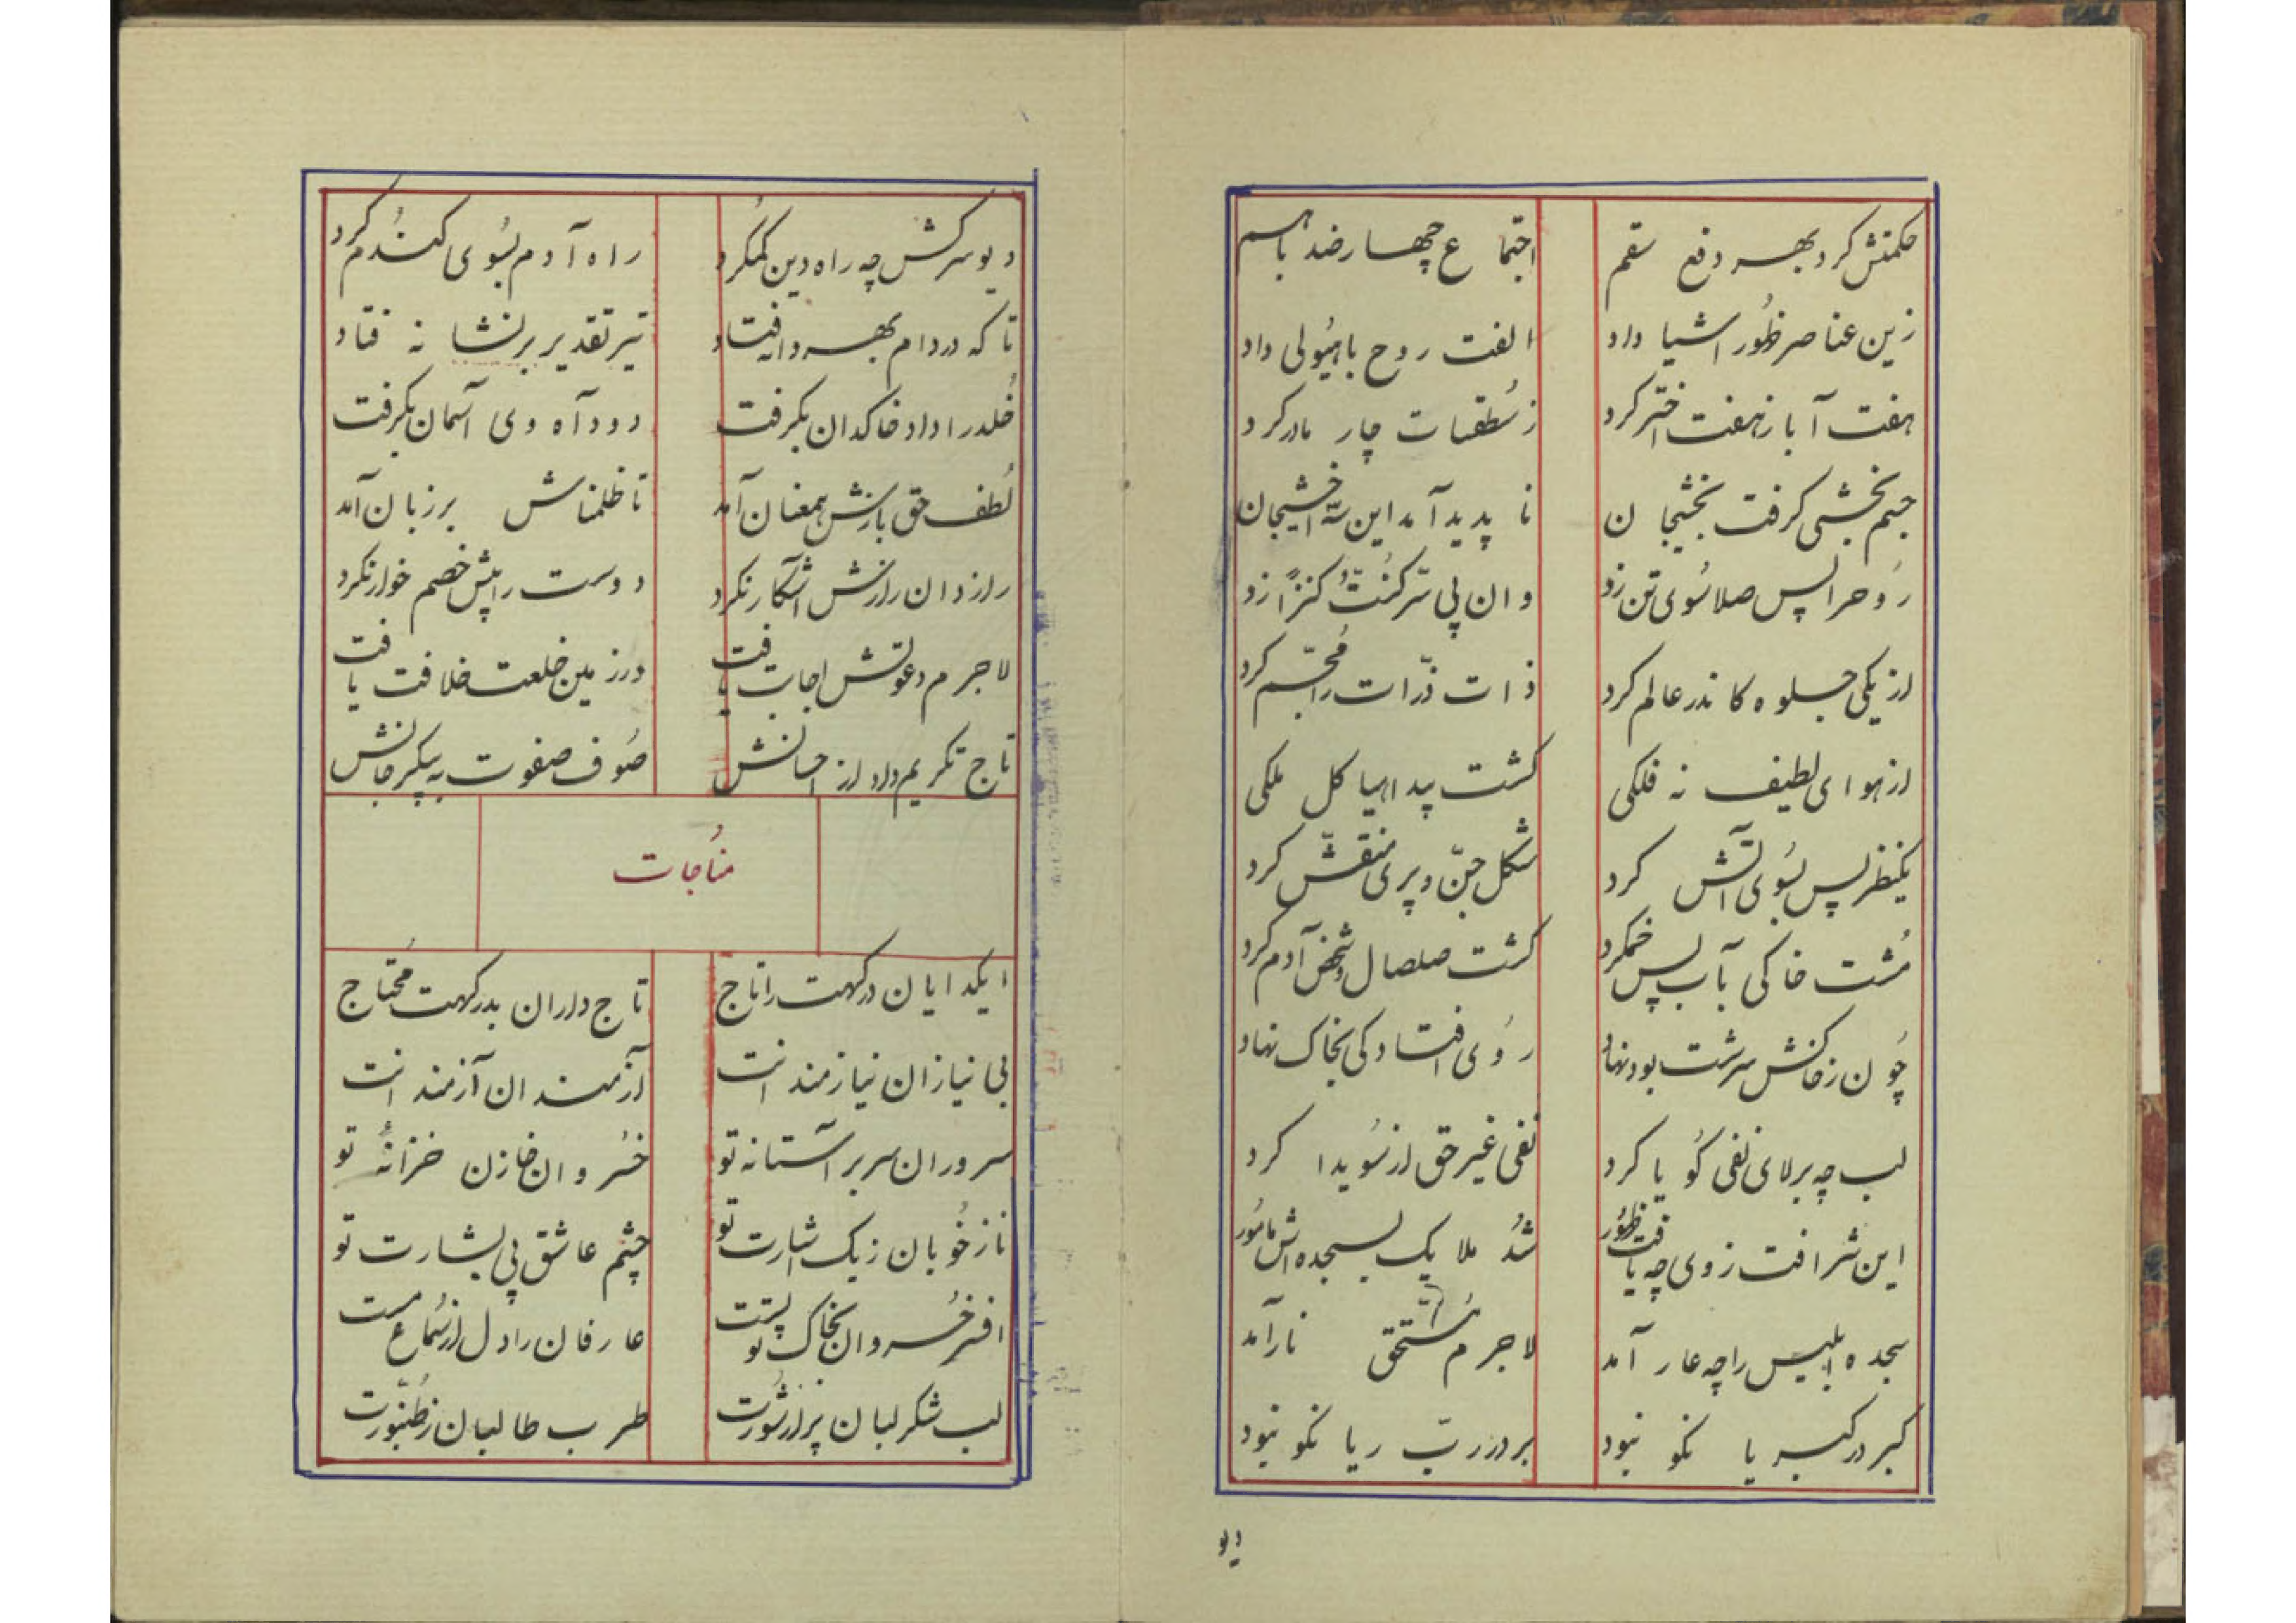 حکمتش کرد بهر دفع سقم اجتماع چهار ضد باهم
زین عناصر ظهور اشیا داد الفت روح با هیولی داد
هفت آبا ز هفت اختر کرد ز سطقسات چار مادر کرد
جسم بخشی گرفت بخشیجان نا پدید آمد این سه اخشیجان
روح را پس صلا سوی تن زد وان پی سر کنت کنزا زد
از یکی جلوه کاندر عالم کرد ذات ذرات را مجسم کرد
از هوای لطیف نه فلکی گشت پیدا هیاکل ملکی
یکنظر پس بسوی آتش کرد شکل جن و پری منقش کرد
مشت خاکی بآب پس خمکرد گشت صلصال و شخص آدم کرد
چون ز خاکش سرشت بود نهاد روی افتادگی بخاک نهاد
لب چه بر لای نفی گویا کرد نفی غیر حق از سویدا کرد
این شرافت ز وی چه یافت ظهور شد ملایک بسجده اش مامور
سجده ابلیس را چه عار آمد لاجرم مستحق نار آمد
کبر در کبریا نکو نبود بر در رب ریا نکو نبود
دیو
دیو سرکش چه راه دین گمکرد راه آدم بسوی گندم کرد
تا که در دام بهر دانه فتاد تیر تقدیر بر نشانه فتاد
خلد را داد خاکدان بگرفت دود آه وی آسمان بگرفت
لطف حق بازش همعنان آمد تا ظلمناش بر زبان آمد
رازدان رازش آشکار نکرد دوست را پیش خصم خوار نکرد
لاجرم دعوتش اجابت یافت در زمین خلعت خلافت یافت
تاج تکریم داد از احسانش صوف صفوت به پیکر جانش
مناجات
ایگدایان درگهت را تاج تاج داران بدرگهت محتاج
بی نیازان نیازمندانت آزمندان آزمندانت
سروران سر بر آستانه تو خسروان خازن خزانهٔ تو
ناز خوبان ز یک اشارت تو چشم عاشق پی بشارت تو
افسر خسروان بخاک تو پست عارفان را دل از سماع مست
لب شکر لبان پر از شورت طرب طالبان ز طنبورت